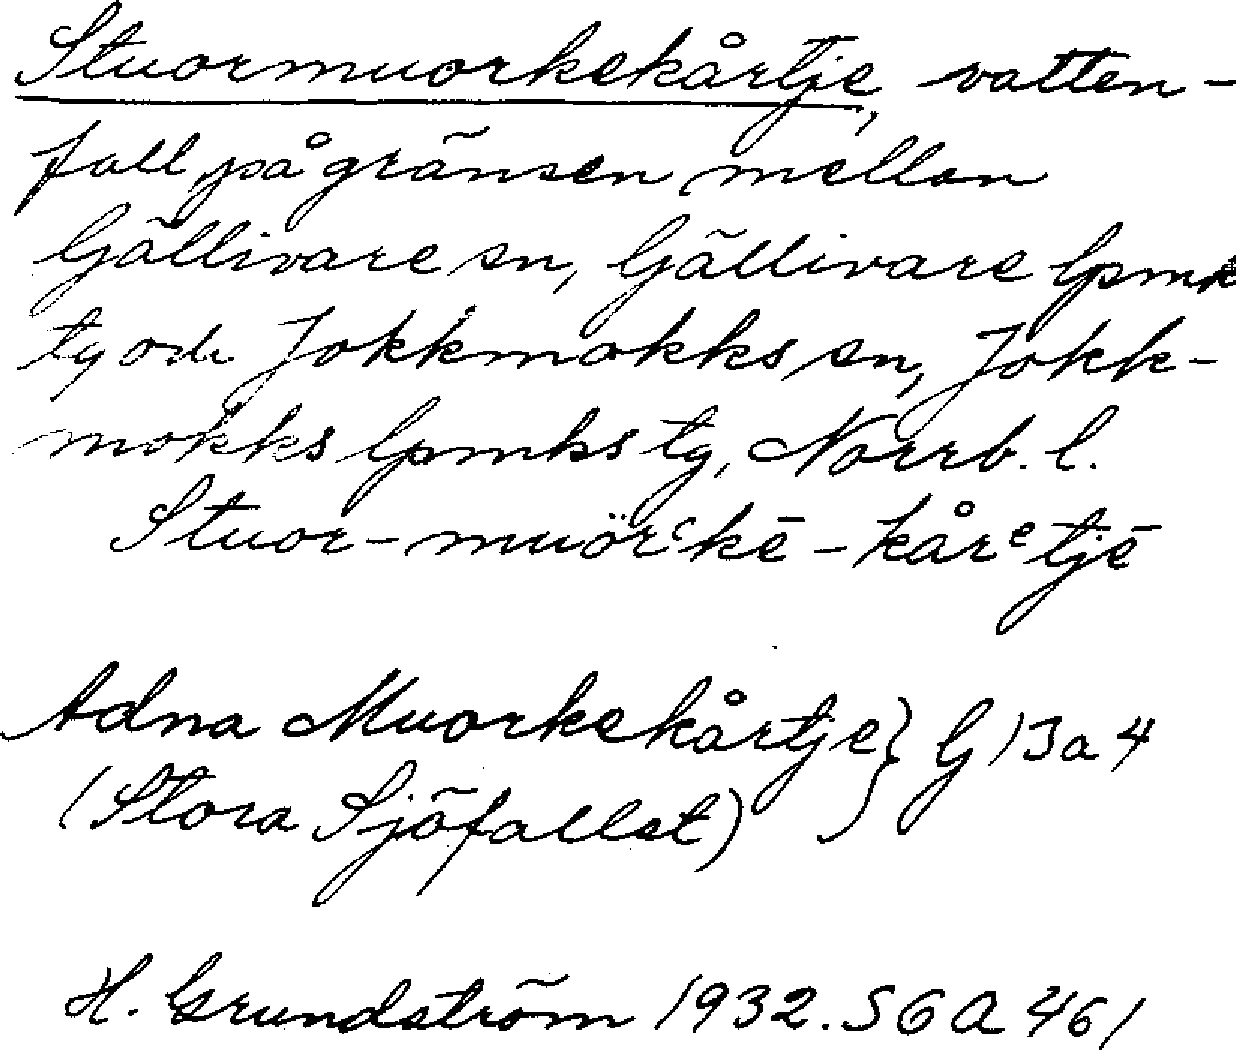 Stuormuorkekårtje, vatten-
fall på gränsen mellan
Gällivare sn, Gällivare lpmk
tg och Jokkmokks sn, Jokk-
mokks lpmks tg, Norrb. l.
Stuor-muörᶜkē-kårᵉtjē
Adna Muorkekårtje } G 13a4
(Stora Sjöfallet)
H. Grundström 1932. SGA 461